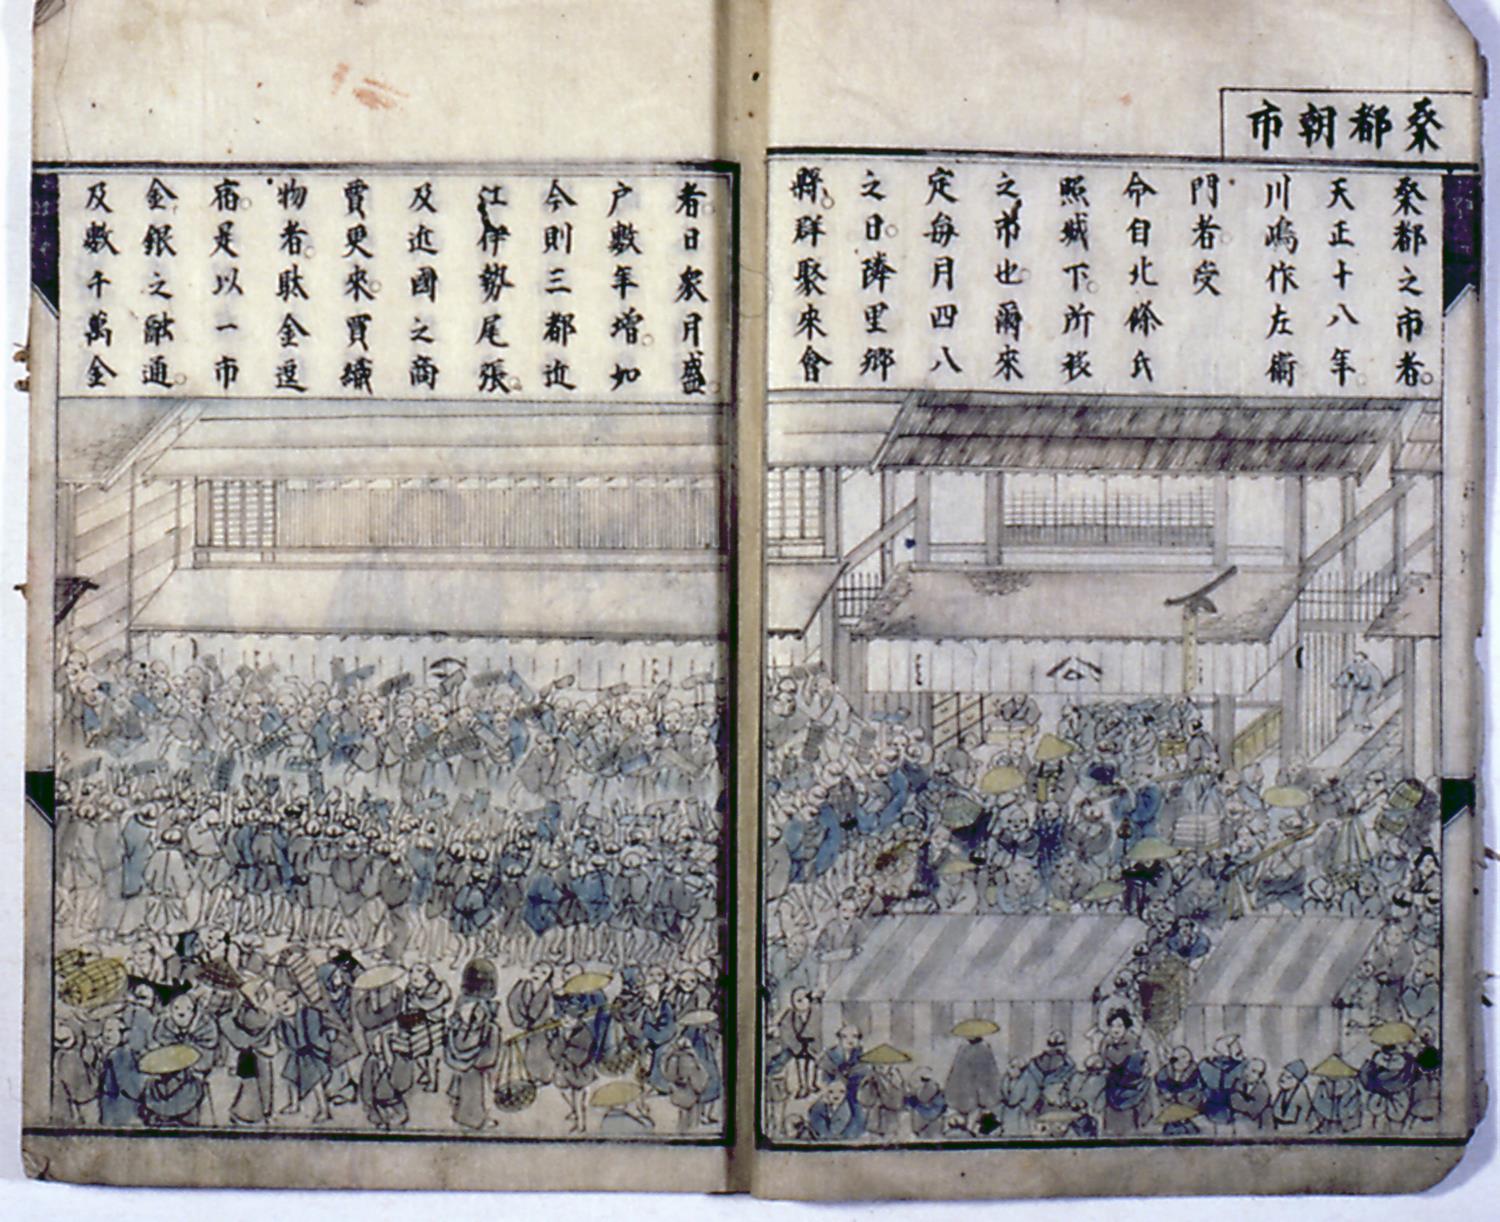 桑都朝市
桑都之市者。
天正十八年。
川嶋作左衛
門者。受
命自北條氏
照城下。所移
之市也。爾來
定每月四八
之日。隣里鄉
縣。群聚來會
者。日衆月盛。
戶數年增。如
今則三都近
江伊勢尾張。
及近國之商
賈更來。買織
物者。駄金逗
宿。是以一市
金銀之融通。
及數千萬金